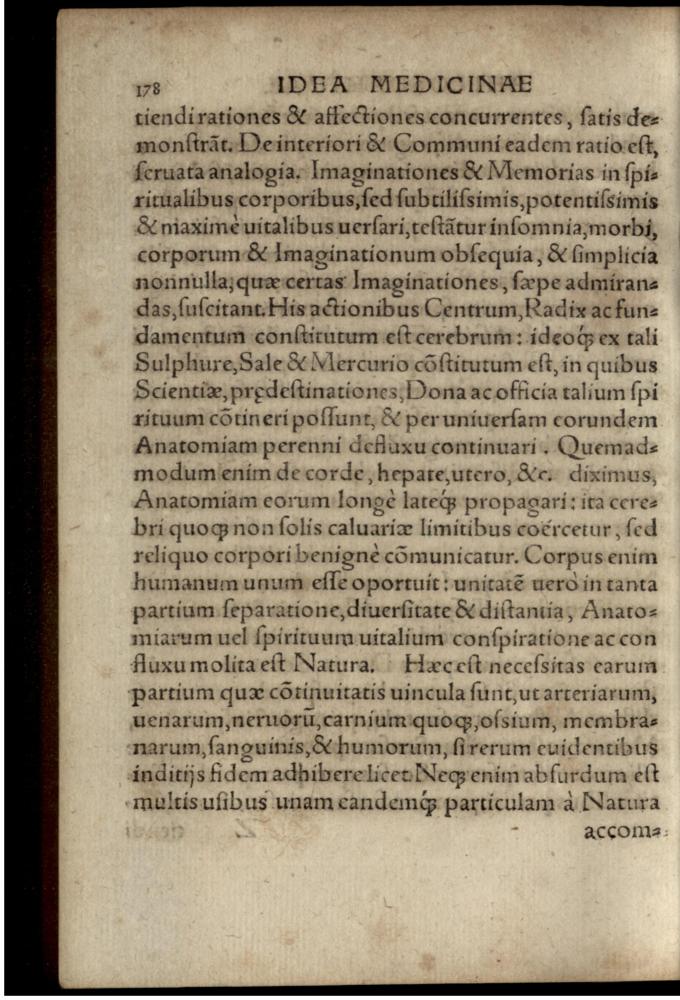 178 IDEA MEDICINAE
tiendi rationes & affectiones concurrentes, ſatis de=
monſtrãt. De interiori & Communi eadem ratio eſt,
ſeruata analogia. Imaginationes & Memorias in ſpi=
ritualibus corporibus, ſed ſubtiliſsimis, potentiſsimis
& maximè uitalibus uerſari, teſtãtur inſomnia, morbi,
corporum & Imaginationum obſequia, & ſimplicia
nonnulla, quæ certas Imaginationes, ſæpe admiran=
das, ſuſcitant. His actionibus Centrum, Radix ac fun=
damentum conſtitutum eſt cerebrum: ideoꝙ́ ex tali
Sulphure, Sale & Mercurio cõſtitutum eſt, in quibus
Scientiæ, prędeſtinationes, Dona ac officia talium ſpi
rituum cõtineri poſſunt, & per uniuerſam eorundem
Anatomiam perenni defluxu continuari. Quemad=
modum enim de corde, hepate, utero, &c. diximus,
Anatomiam eorum longè lateꝙ́ propagari: ita cere=
bri quoꝙ non ſolis caluariæ limitibus coërcetur, ſed
reliquo corpori benignè cõmunicatur. Corpus enim
humanum unum eſſe oportuit: unitatẽ uerò in tanta
partium ſeparatione, diuerſitate & diſtantia, Anato=
miarum uel ſpirituum uitalium conſpiratione ac con
fluxu molita eſt Natura. Hæc eſt neceſsitas earum
partium quæ cõtinuitatis uincula ſunt, ut arteriarum,
uenarum, neruorũ, carnium quoꝙ, oſsium, membra=
narum, ſanguinis, & humorum, ſi rerum euidentibus
inditijs fidem adhibere licet. Neꝙ enim abſurdum eſt
multis uſibus unam eandemꝙ́ particulam à Natura
accom=